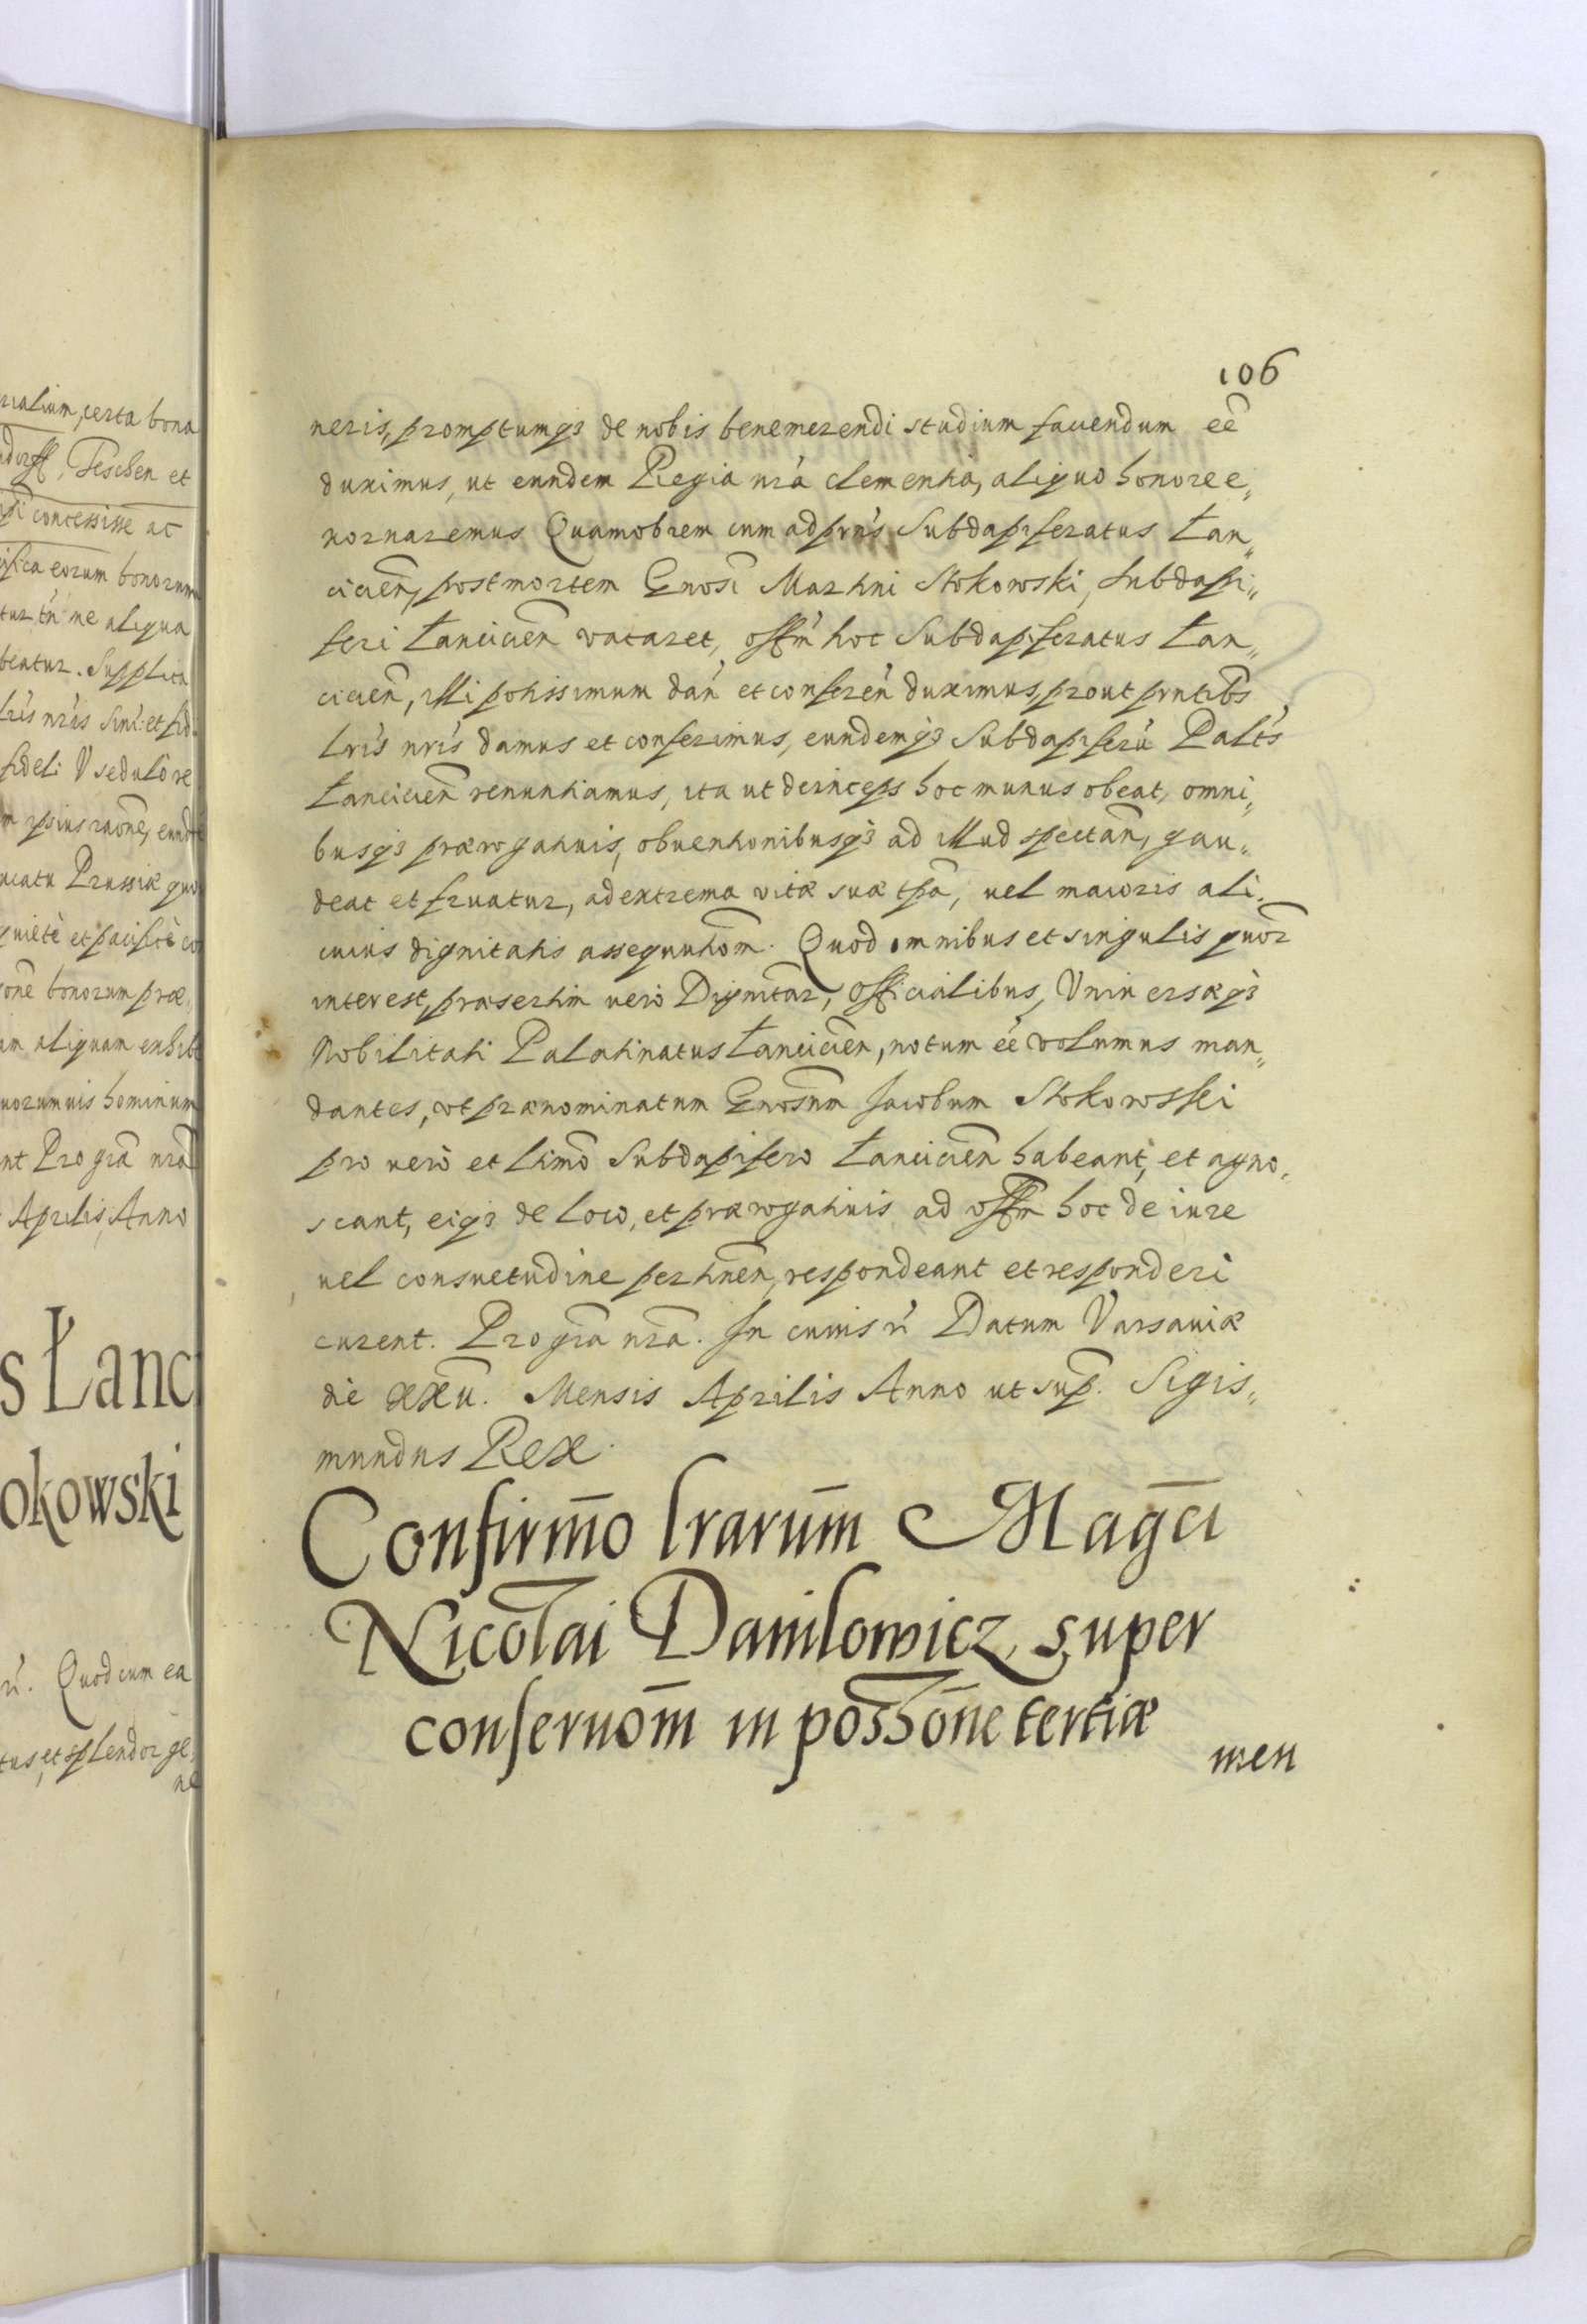 rialium, certa bona
ndorff, Teschen et
concessisse ac
ifica eorum bonorum
tur tn̄ ne aliqua
beatur. Supplica
lr̄is nr̄is
fideli V sedulò re
m ipsius raōne, eund
ucatu Prussiæ quo
quietè et pacificè co
onē bonorum præ
am aliquam exhibe
uorumuis hominum
nt Pro grā nrā
Aprilis, Anno
s Łanc
okowski
rí. Quod cum ea
tus, et splendor ge
ne
106
neris, promptumq3 de nobis benemerendi studium fauendum eē
duximus, ut eundem Regia nrā clementia, aliquo honore e„
xornaremus Quamobrem cum ad prn̄s Subdapiferatus Lan„
cicień, post mortem Gnosi Martini Stokowski, Subdapi„
feri Lancicień vacaret, offm̄ hoc Subdapiferatus Lan„
cicień, illi potissimum dań et confereń duximus, prout prntibs
lrīs nrīs damus et conferimus, eundemq3 Subdapiferū Paltīs
Lancicień renuntiamus, ita ut deinceps hoc munus obeat, omni„
busq3 prærogatiuis, obuentionibusq3 ad illud spectań, gau„
deat et fruatur, ad extrema vitæ suæ tpa, uel maioris ali„
cuius dignitatis assequutiom̄. Quod omnibus et singulis quor
interest, præsertim uerò Dignitar, Officialibus, Vniuersæq3
Nobilitati Palatinatus Lancicień, notum eē volumus man„
dantes, vt prænominatum Gnosum Jacobum Stokowski
pro uerò et ltimo Subdapifero Lancicień habeant, et agno„
scant, eiq3 de loco, et prærogatiuis ad offm̄ hoc de iure
uel consuetudine pertineń, respondeant et responderi
curent. Pro grā nrā. In cuius rí Datum Varsauiæ
die xxu. Mensis Aprilis Anno ut sup. Sigis„
mundus Rex.
Confirmō lrarum̄ Magc̄i
Nicolai Danilowicz super
conseruom̄ in possōne tertiæ
men